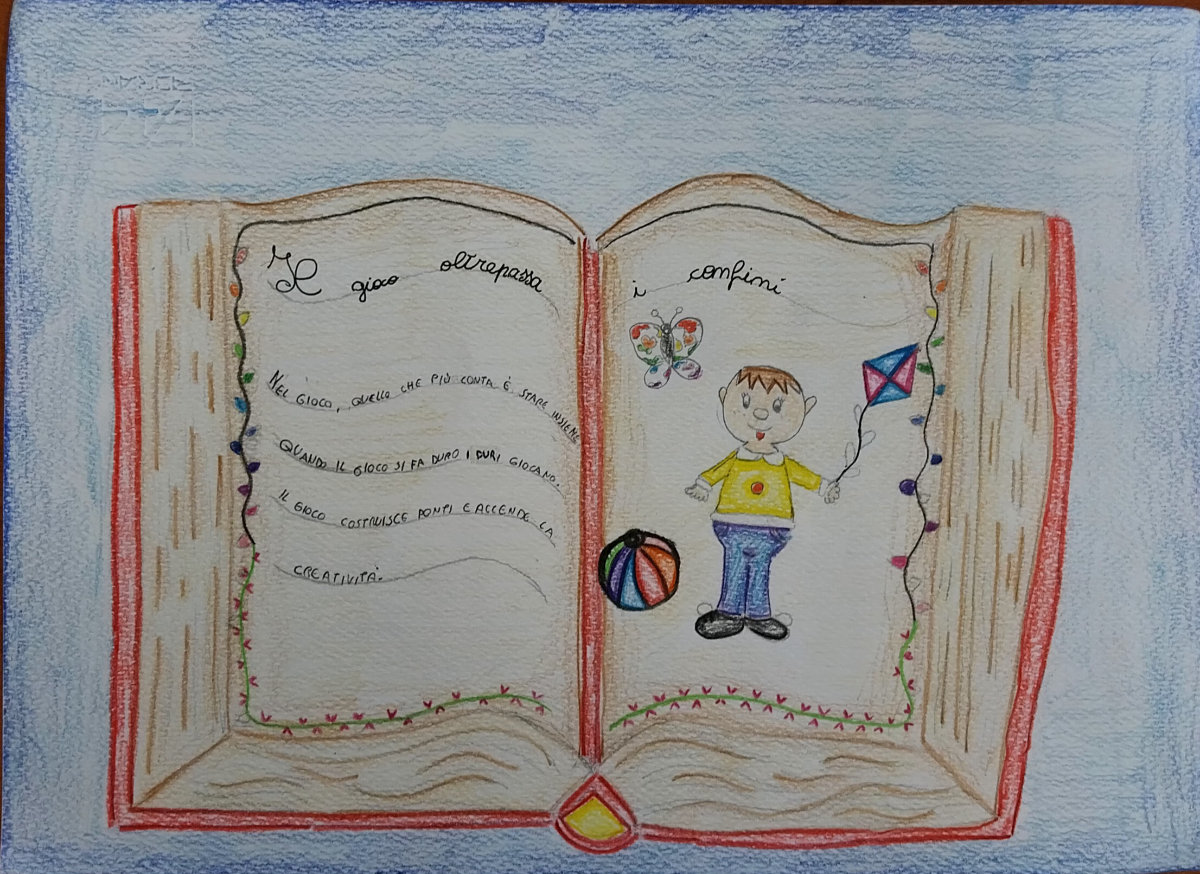 Il gioco oltrepassa i confini
NEL GIOCO, QUELLO CHE PIÙ CONTA È STARE INSIEME
QUANDO IL GIOCO SI FA DURO I DURI GIOCANO.
IL GIOCO COSTRUISCE PONTI E ACCENDE LA
CREATIVITÀ.